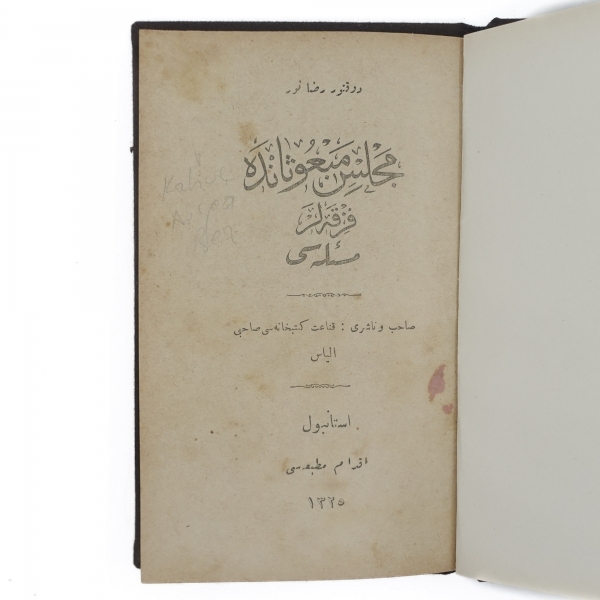 دوقتور رضا نور
مَجْلِسِ مَبْعُوثَانْدَه
فِرْقَه لَرْ
مسئله سی
صاحب و ناشری : قناعت كتبخانه سی صاحبی
الیاس
استانبول
اقدام مطبعه سی
١٣٢٥